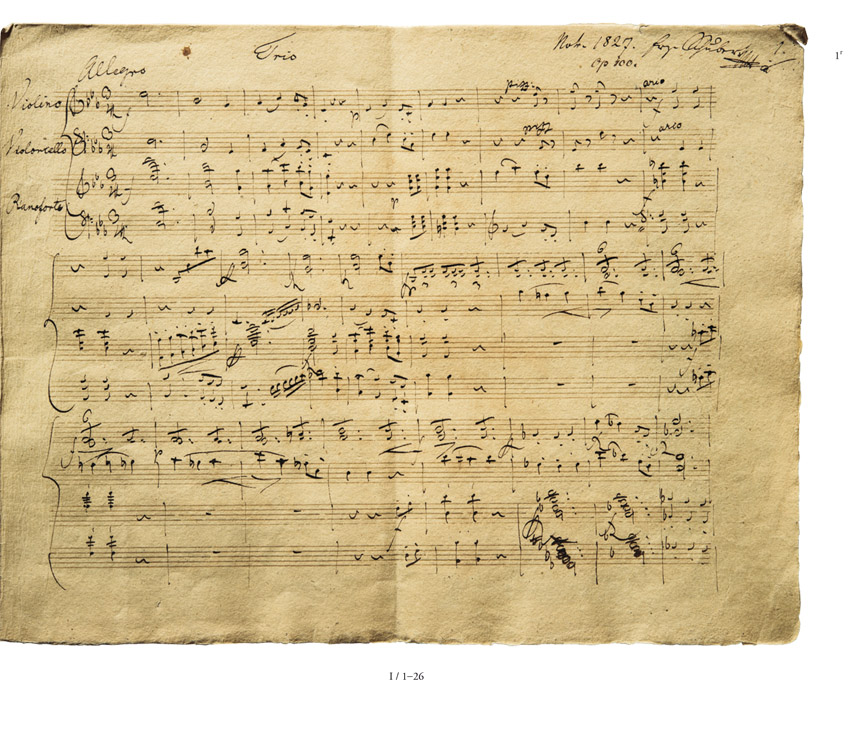 Trio
Nov. 1827. Frz. Schubert
Op 100.
1.
1r
Allegro
Violino
Violoncello
Pianoforte
pizz:
arco
pizz
arco
I / 1–26